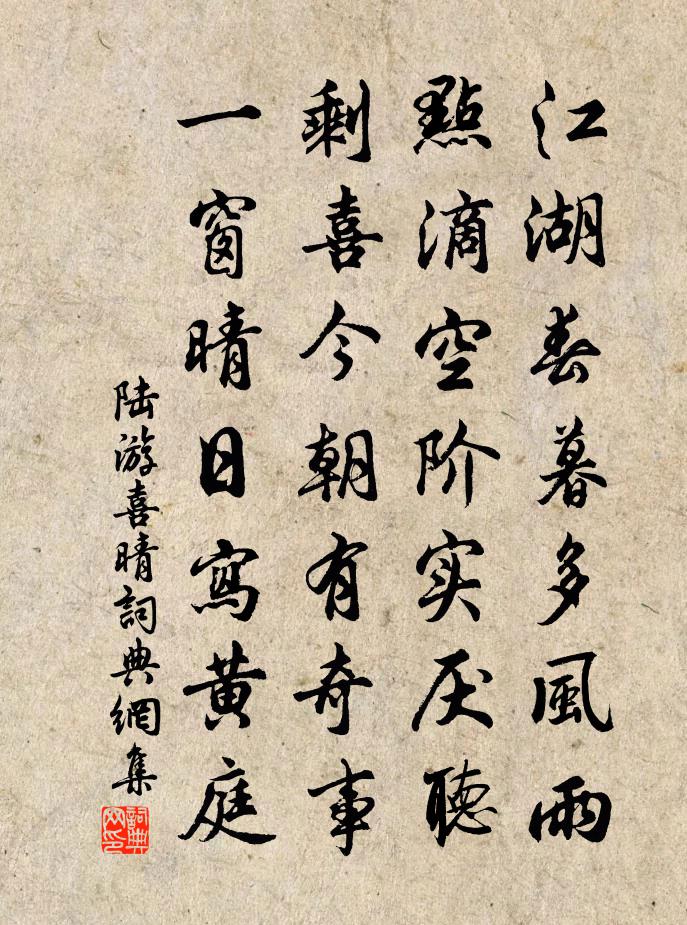 江湖春暮多風雨
點滴空阶实厌聴
剩喜今朝有奇事
一窗晴日寫黄庭
陆游喜晴詞典網集
詞典网印